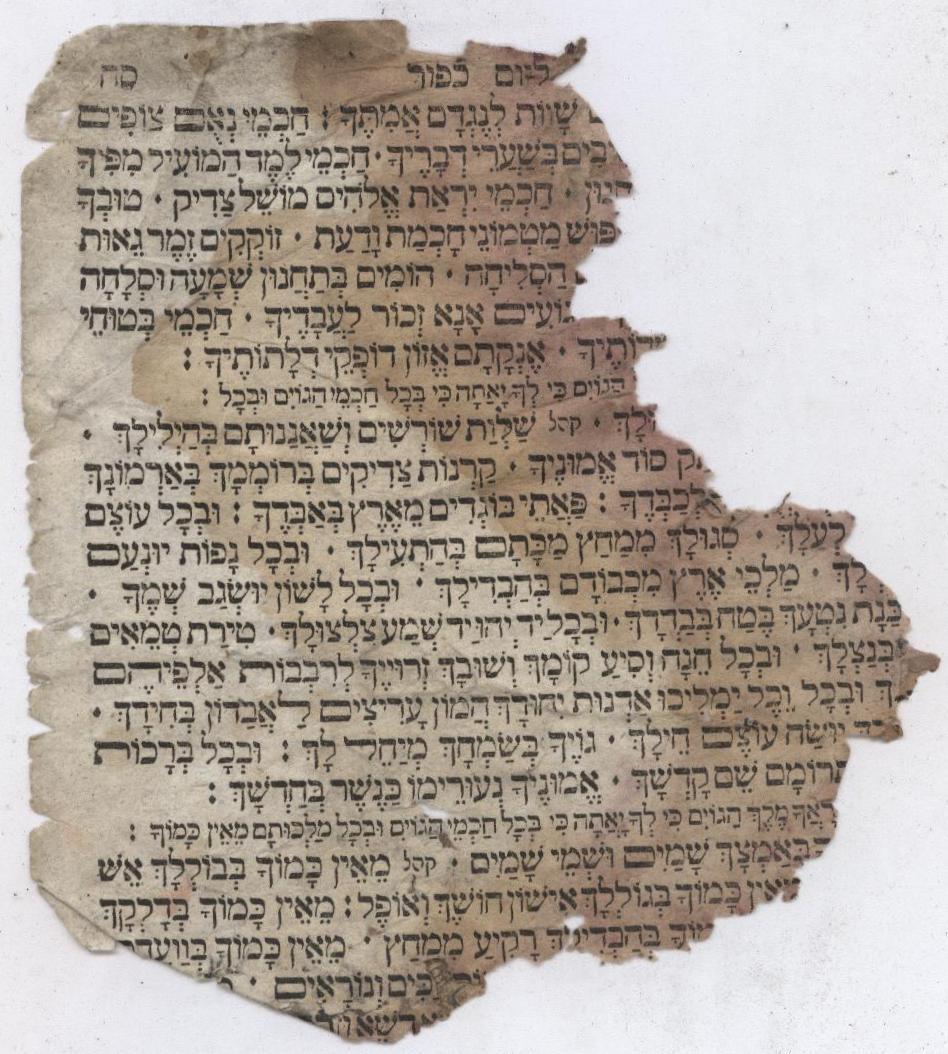 ליום כפור סה
שָׁווֹת לְנֶגְדָּם אֲמִתֶּךָ : חַכְמֵי נְאֻם צוֹפִים
בְּשַׁעֲרֵי דְבָרֶיךָ · חַכְמֵי לֶמֶד הַמּוֹעִיל מִפִּיךָ
חַכְמֵי יִרְאַת אֱלֹהִים מוֹשֵׁל צַדִּיק · טוּבְךָ
מַטְמוֹנֵי חָכְמַת וָדַעַת · זוֹקְקִים זֶמֶר גֵּאוּת
הַסְּלִיחָה · הוֹמִים בְּתַחֲנוּן שְׁמָעָה וּסְלָחָה
אָנָּא זְכוֹר לַעֲבָדֶיךָ · חַכְמֵי בְּטוּחֵי
אֶנְקָתָם אֱזוֹן דּוֹפְקֵי דְלָתוֹתֶיךָ :
הַגּוֹיִם כִּי לְךָ יָאָתָה כִּי בְּכָל חַכְמֵי הַגּוֹיִם וּבְכָל :
קהל שַׁלְוַת שׁוֹרְשִׁים וְשַׁאֲנַנּוּתָם בְּהַיְלִילָךְ ·
סוֹד אֱמוּנֶיךָ · קַרְנוֹת צַדִּיקִים בְּרוֹמְמָךְ בְּאַרְמוֹנָךְ
לְכַבְּדֶךָ : פַּאֲתֵי בּוֹגְדִים מֵאֶרֶץ בְּאַבְּדֶךָ : וּבְכָל עוֹצֶם
סְגוּלָךְ מִמַּחַץ מַכָּתָם בְּהַתְעִילָךְ · וּבְכָל נָפוֹת יוּנְעַם
לָךְ · מַלְכֵי אֶרֶץ מִכְּבוֹדָם בְּהַבְדִּילָךְ · וּבְכָל לָשׁוֹן יוּשְׂגַּב שְׁמֶךָ ·
כַּנַּת נִטְעָךְ בֶּטַח בְּבַדְּדָךְ · וּבְכָל יַד יְהוּיַד שְׁמַע צִלְצוּלָךְ · טִירַת טְמֵאִים
בְּנַצְלָךְ · וּבְכָל חֵנָּה וְסִיעַ קוֹמָךְ וְשׁוּבָךְ זְרוּיֶיךָ לְרִבְבוֹת אַלְפֵיהֶם
וּבְכָל וְכָל יַמְלִיכוּ אַדְנוּת יִחוּדָךְ הֲמוֹן עָרִיצִים לַאֲבַדּוֹן בְּחִידָךְ ·
יוּשָּׂא עוֹצֶם חֵילָךְ · גּוֹיֶךָ בְּשַׂמְּחָךְ מְיַחֵלֵי לָךְ : וּבְכָל בְּרָכוֹת
תְּרוֹמָם שֵׁם קָדְשָׁךְ · אֱמוּנֶיךָ נְעוּרֵימוֹ כַּנֶּשֶׁר בְּחַדְּשָׁךְ :
מֶלֶךְ הַגּוֹיִם כִּי לְךָ יָאָתָה כִּי בְּכָל חַכְמֵי הַגּוֹיִם וּבְכָל מַלְכוּתָם מֵאֵין כָּמוֹךָ :
בְּאַמְּצָךְ שָׁמַיִם וּשְׁמֵי שָׁמַיִם · קהל מֵאֵין כָּמוֹךָ בְּבוֹלְלָךְ אֵשׁ
מֵאֵין כָּמוֹךָ בְּגוֹלְלָךְ אִישׁוֹן חוֹשֶׁךְ וְאוֹפֶל : מֵאֵין כָּמוֹךָ בְּדָלְקָךְ
בְּהַבְדִּילָךְ רָקִיעַ מִמַּחַץ · מֵאֵין כָּמוֹךָ
וְנוֹרָאִים ·